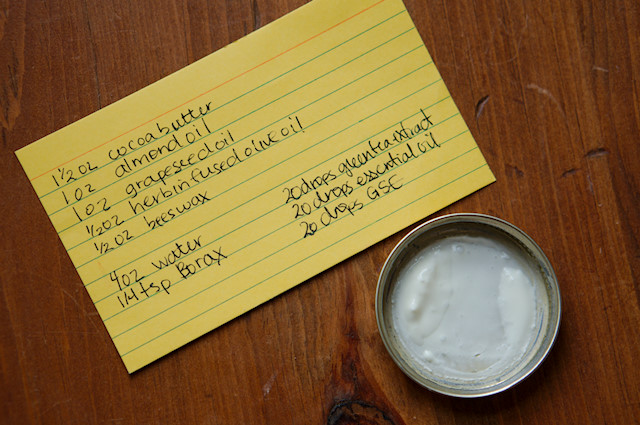 1 1/2 oz cocoa butter
1 oz almond oil
1 oz grapeseed oil
1/2 oz herb infused olive oil
1/2 oz beeswax
4 oz water
1/4 tsp Borax
20 drops green tea extract
20 drops essential oil
20 drops GSE